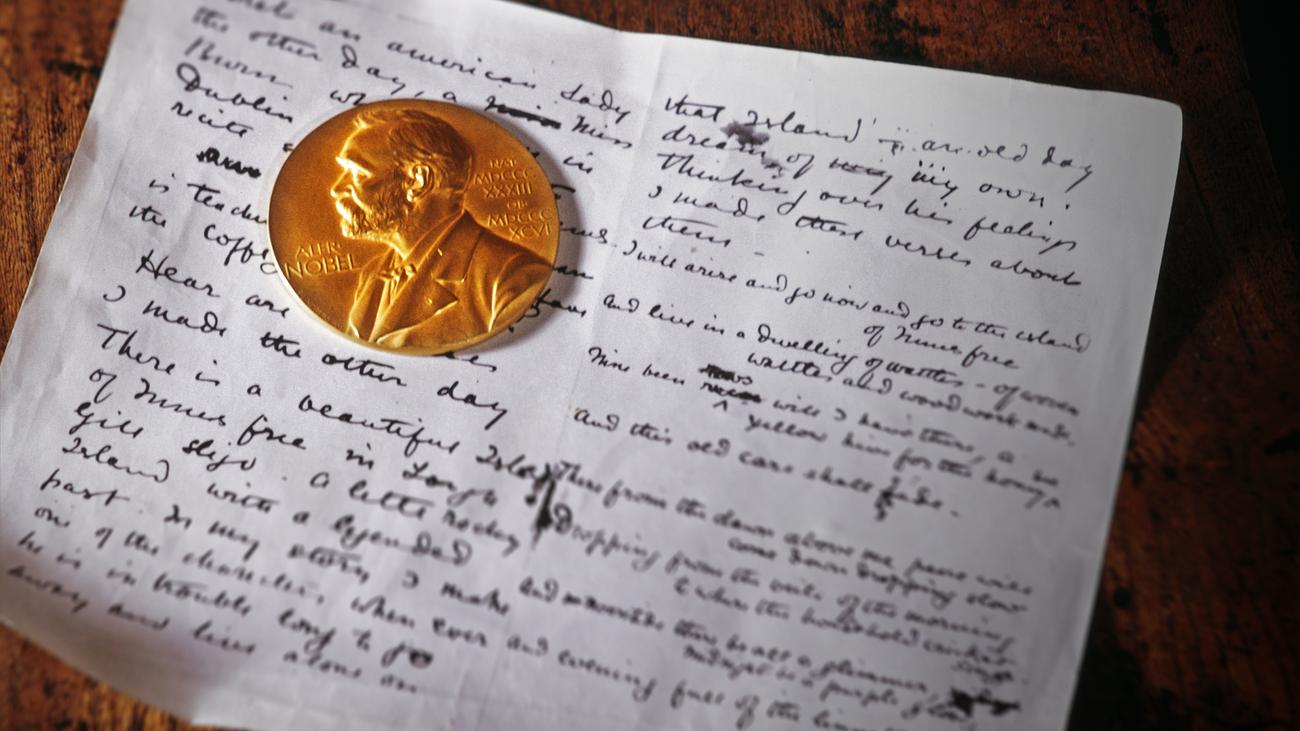 an american Lady
the other day, a Miss
Dublin
recite in
is teaching
the
Hear are
I made the other day
There is a beautiful Island
of Innis free in Lough
Gill Sligo. A little rocky
Island with a legended
past. In my story I make
one of the characters when ever
he is in trouble long to go
away and live alone on
ALFR.
NOBEL
NAT.
MDCCC
XXXIII
OB.
MDCCC
XCVI
that Island an old day
dream of my own.
Thinking over his feelings
I made these verses about
them
I will arise and go now and go to the island
of Innis free
And live in a dwelling of wattles - of woven
wattles and wood work made,
Nine bean will I have there, a
yellow hive for the honey
And this old care shall fade.
There from the dawn above me peace will
come down dropping slow
Dropping from the veils of the morning
to where the household cricket
sings.
And noontide there be all a glimmer,
midnight be a purple glow
and evening full of the